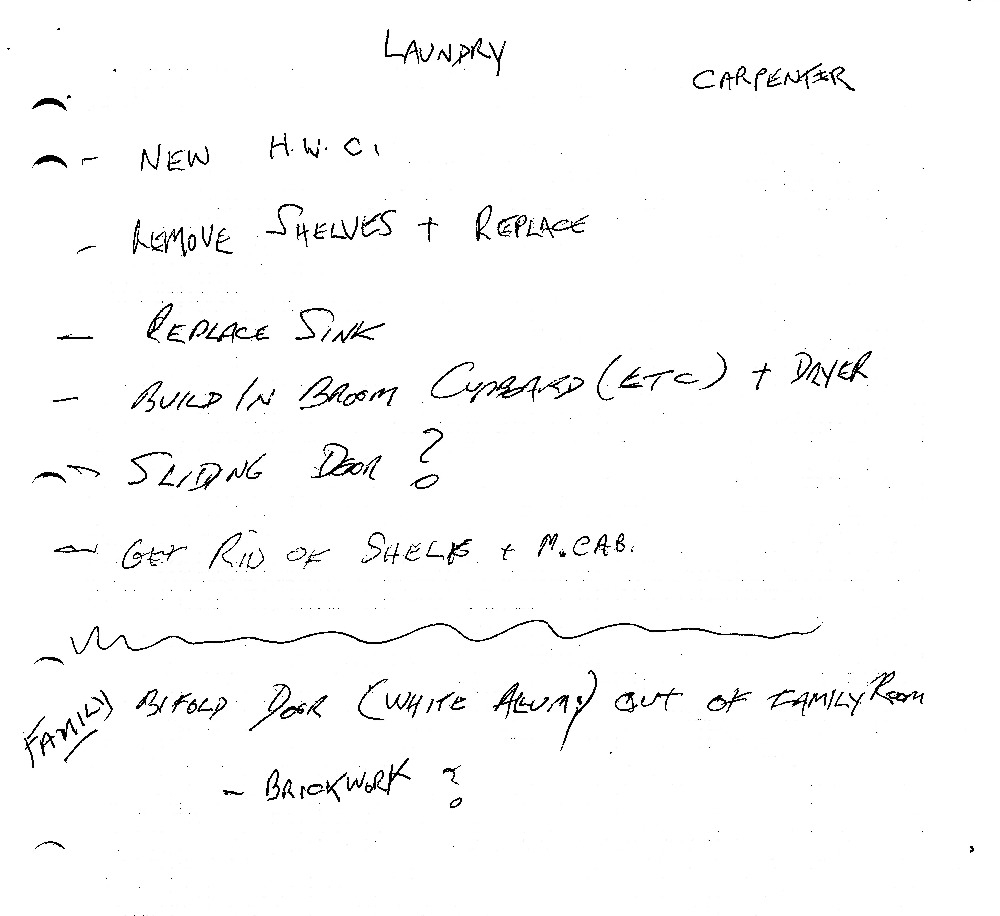 LAUNDRY
CARPENTER
- NEW H.W.C.
- REMOVE SHELVES + REPLACE
- REPLACE SINK
- BUILD IN BROOM CUPBOARD (ETC) + DRYER
- SLIDING DOOR ?
- GET RID OF SHELF + M.CAB.
FAMILY) BIFOLD DOOR (WHITE ALUM.) OUT OF FAMILY ROOM
- BRICKWORK ?